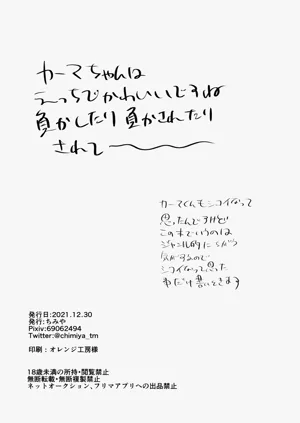 カーマちゃんは
えっちでかわいいですね
負かしたり負かされたり
されて〜
カーマくんもシコいなって
思ったんですけど
この本でいうのは
ジャンル的にちがう
気がするので
シコいなって思った
わだけ書いときます
発行日:2021.12.30
発行:ちみや
Pixiv:69062494
Twitter:@chimiya_tm
印刷:オレンジ工房様
18歳未満の所持・閲覧禁止
無断転載・無断複製禁止
ネットオークション、フリマアプリへの出品禁止